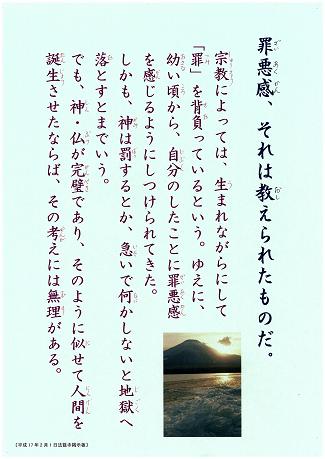 罪悪感、それは教えられたものだ。
宗教によっては、生まれながらにして
「罪」を背負っているという。ゆえに、
幼い頃から、自分のしたことに罪悪感
を感じるようにしつけられてきた。
しかも、神は罰するとか、急いで何かしないと地獄へ
落とすとまでいう。
でも、神・仏が完璧であり、そのように似せて人間を
誕生させたならば、その考えには無理がある。
(平成17年2月1日法龍寺掲示板)